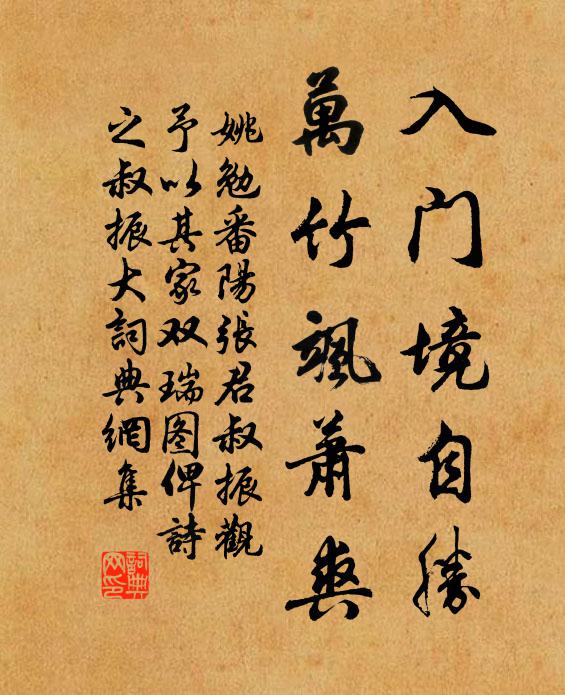 入门境自勝
萬竹颯蕭爽
姚勉番陽張君叔振觀
予以其家双瑞图俾詩
之叔振大詞典網集
詞典网印